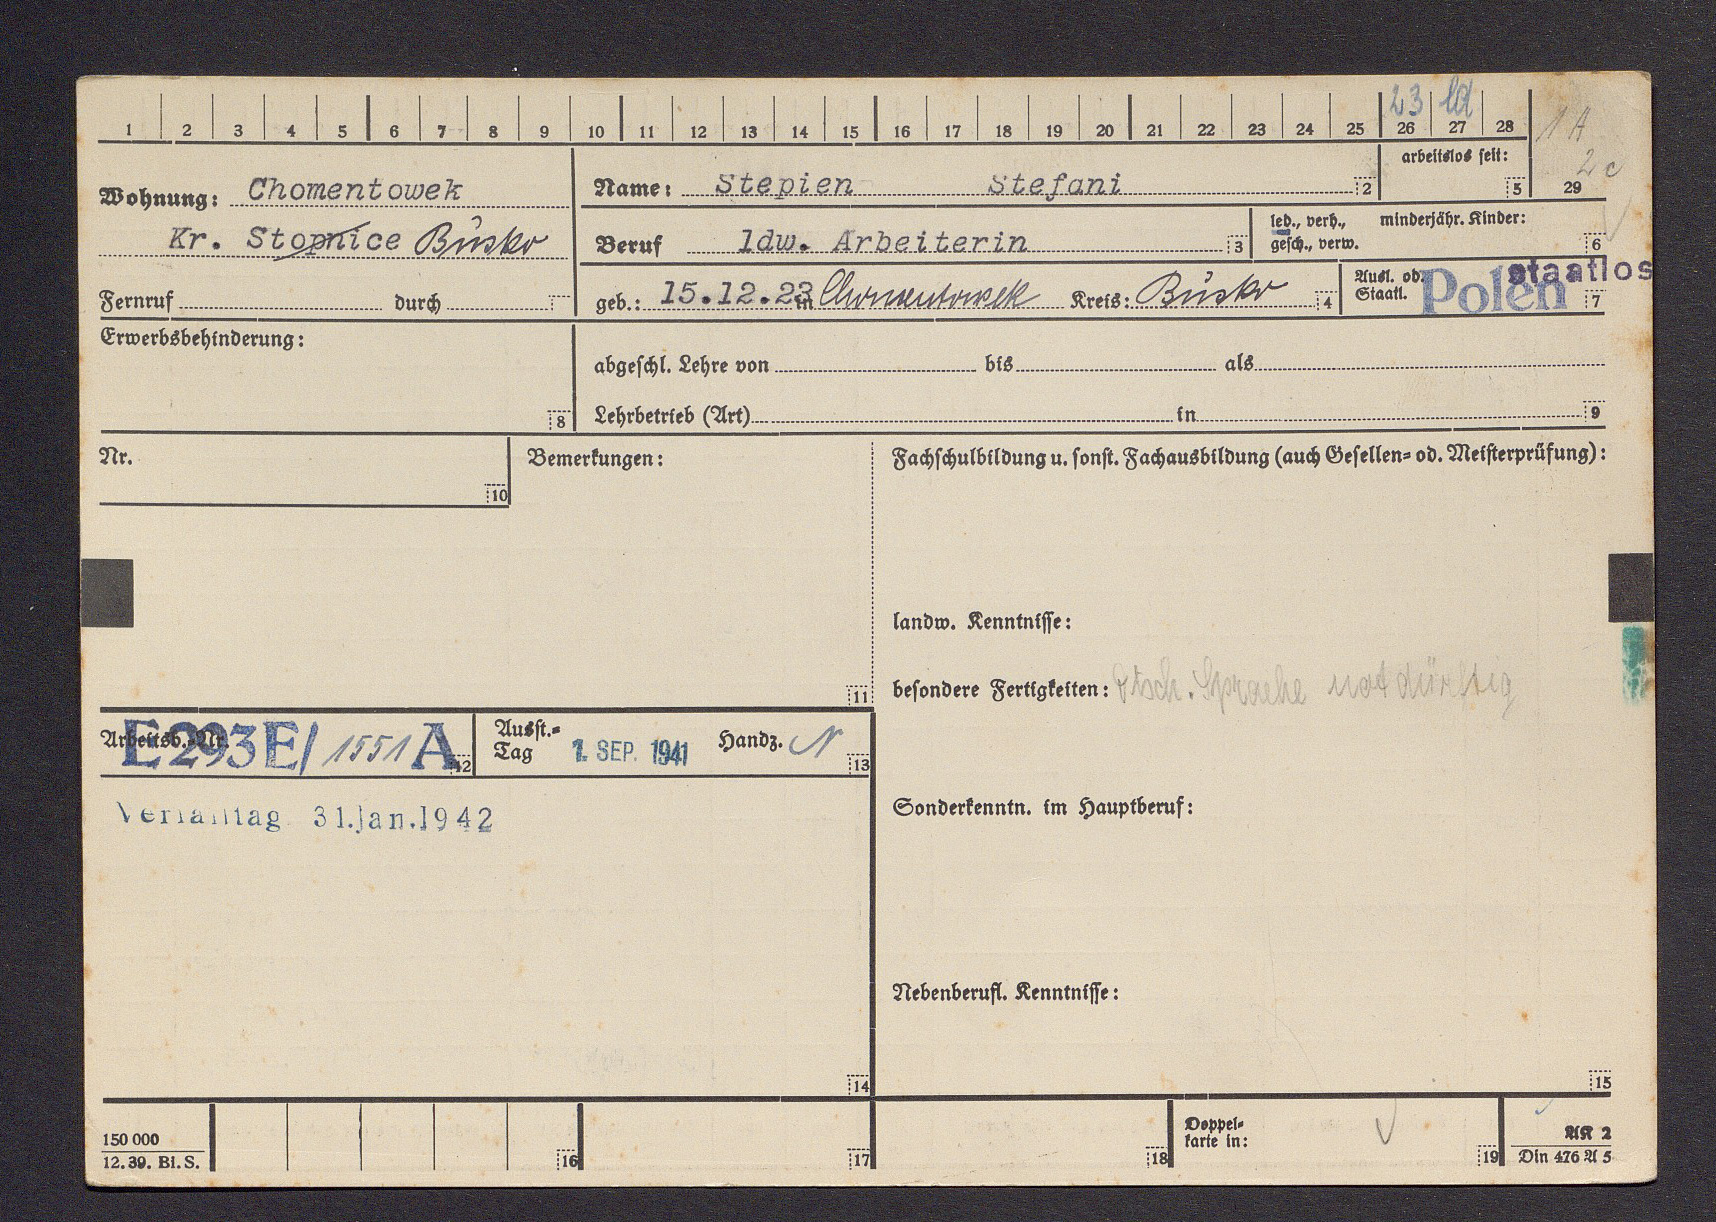 23 ld
1 2 3 4 5 6 7 8 9 10 11 12 13 14 15 16 17 18 19 20 21 22 23 24 25 26 27 28
1 A
2 c
29
arbeitslos seit: 5
Wohnung: Chomentowek
Kr. Stopnice Busko
Fernruf durch
Name: Stepien Stefani 2
Beruf ldw. Arbeiterin 3
led., verh., minderjähr. Kinder:
gesch., verw. 6
geb.: 15.12.23 in Chomentowek Kreis: Busko 4
Ausl. od.
Staatl. Polen staatlos 7
Erwerbsbehinderung: 8
abgeschl. Lehre von bis als
Lehrbetrieb (Art) in 9
Nr. 10
Bemerkungen: 11
Fachschulbildung u. sonst. Fachausbildung (auch Gesellen- od. Meisterprüfung):
landw. Kenntnisse:
besondere Fertigkeiten: Dtsch. Sprache notdürftig
Arbeitsb.-Nr. E 293E/ 1551 A 12
Ausst.-
Tag 1. SEP. 1941 Handz. N 13
Verfalltag 31.Jan.1942
Sonderkenntn. im Hauptberuf:
Nebenberufl. Kenntnisse:
14
15
150 000
12. 39. Bl. S.
16 17 18
Doppel-
karte in: 19
AK 2
Din 476 A 5